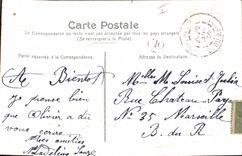 Carte Postale
La Correspondance au recto n'est pas acceptée par tous les pays étrangers
(Se renseigner à la Poste)
Partie réservée à la Correspondance.
Adresse du Destinataire.
A Bientôt
Je pense bien
que Olivier a dû
vous
Mes amitiés
Madeleine
Melle M. Louise
Rue Chateau
N° 25 Marseille
B. du R